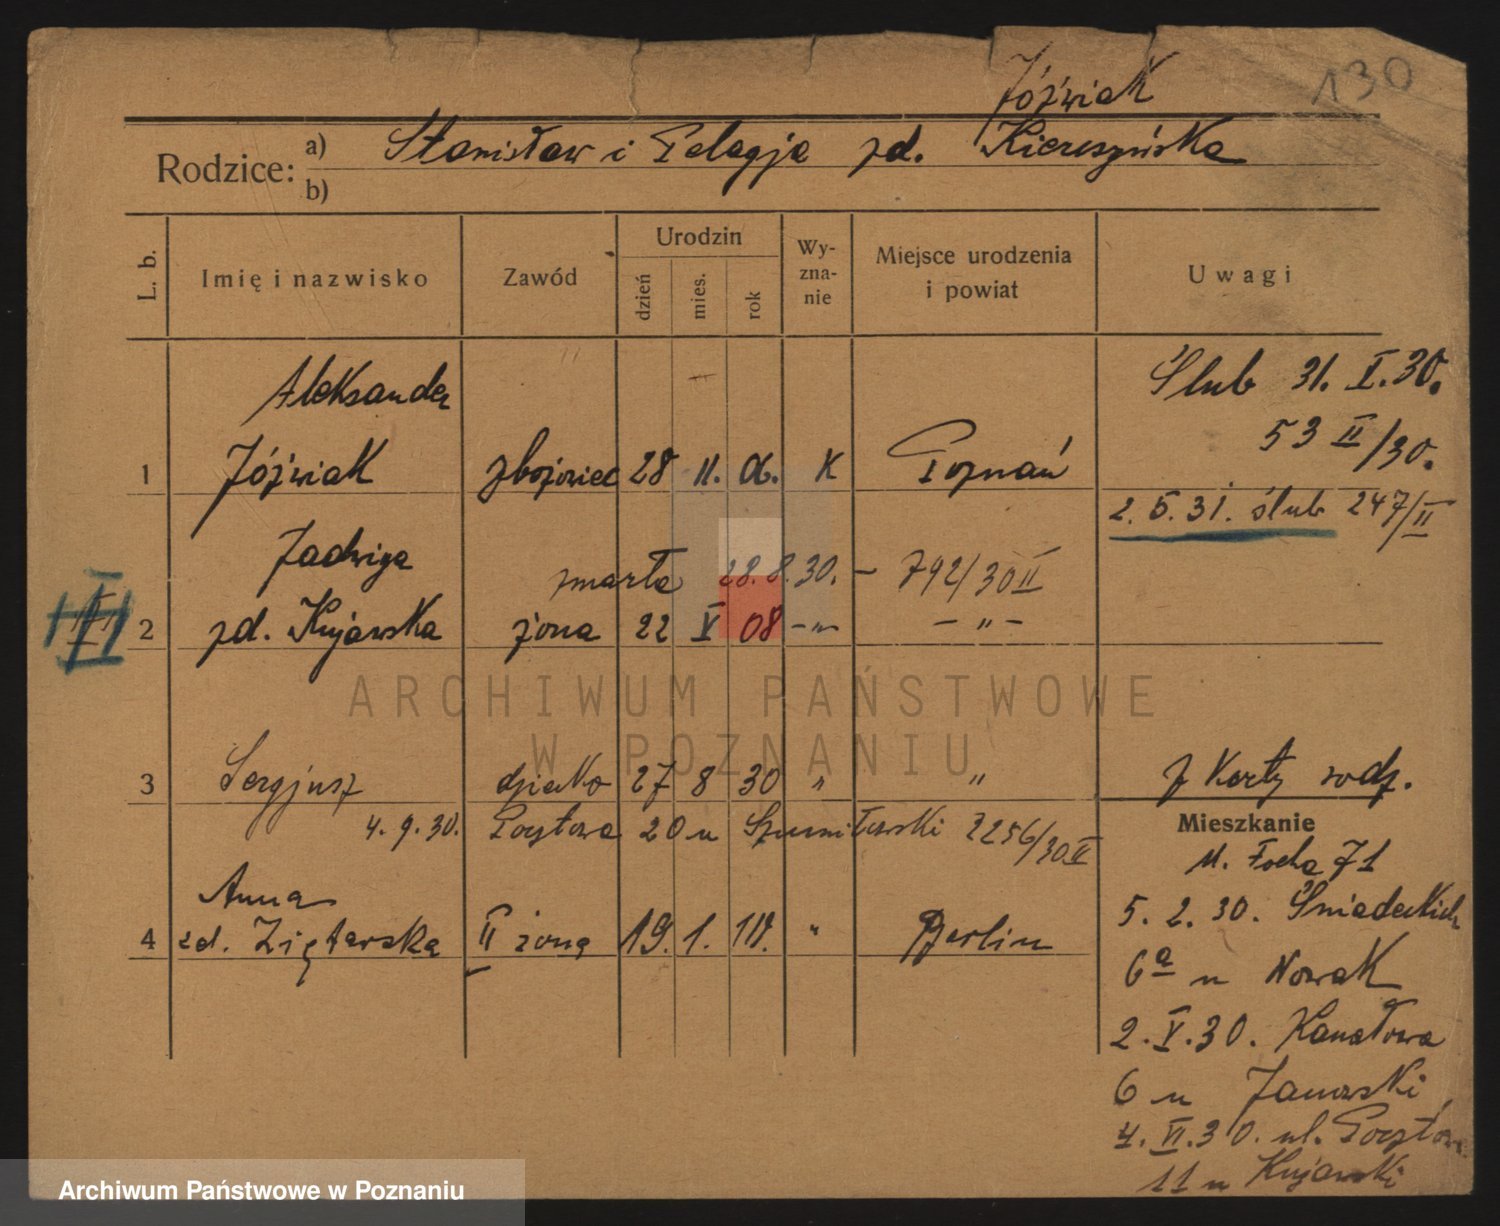 130
Jóźwiak
Rodzice: a) Stanisław i Pelagja zd. Kierszyńska
b)
L. b.
Imię i nazwisko
Zawód
Urodzin
dzień
mies.
rok
Wy-
zna-
nie
Miejsce urodzenia
i powiat
Uwagi
Aleksander
Ślub 31. I. 30.
53 II/30.
1 Jóźwiak zbożowiec 28 11. 06. K Poznań
2. 5. 31. ślub 247/II
Jadwiga
zmarła 28. 8. 30. – 792/30 II
2 zd. Kujawska żona 22 V 08 -„- -„-
3 Sergjusz dziecko 27 8 30 „ „
z Karty rodz.
4. 9. 30. Pocztowa 20 u Szumiłowski 2256/30 II
Mieszkanie
M. Focha 71
Anna
5. 2. 30. Śniadeckich
4 zd. Ziętarska II żona 19. 1. 10. „ Berlin
6a u Nowak
2. V. 30. Kanałowa
6 u Janowski
4. VI. 30. ul. Pocztowa
11 u Kujawski
ARCHIWUM PAŃSTWOWE
W POZNANIU
Archiwum Państwowe w Poznaniu